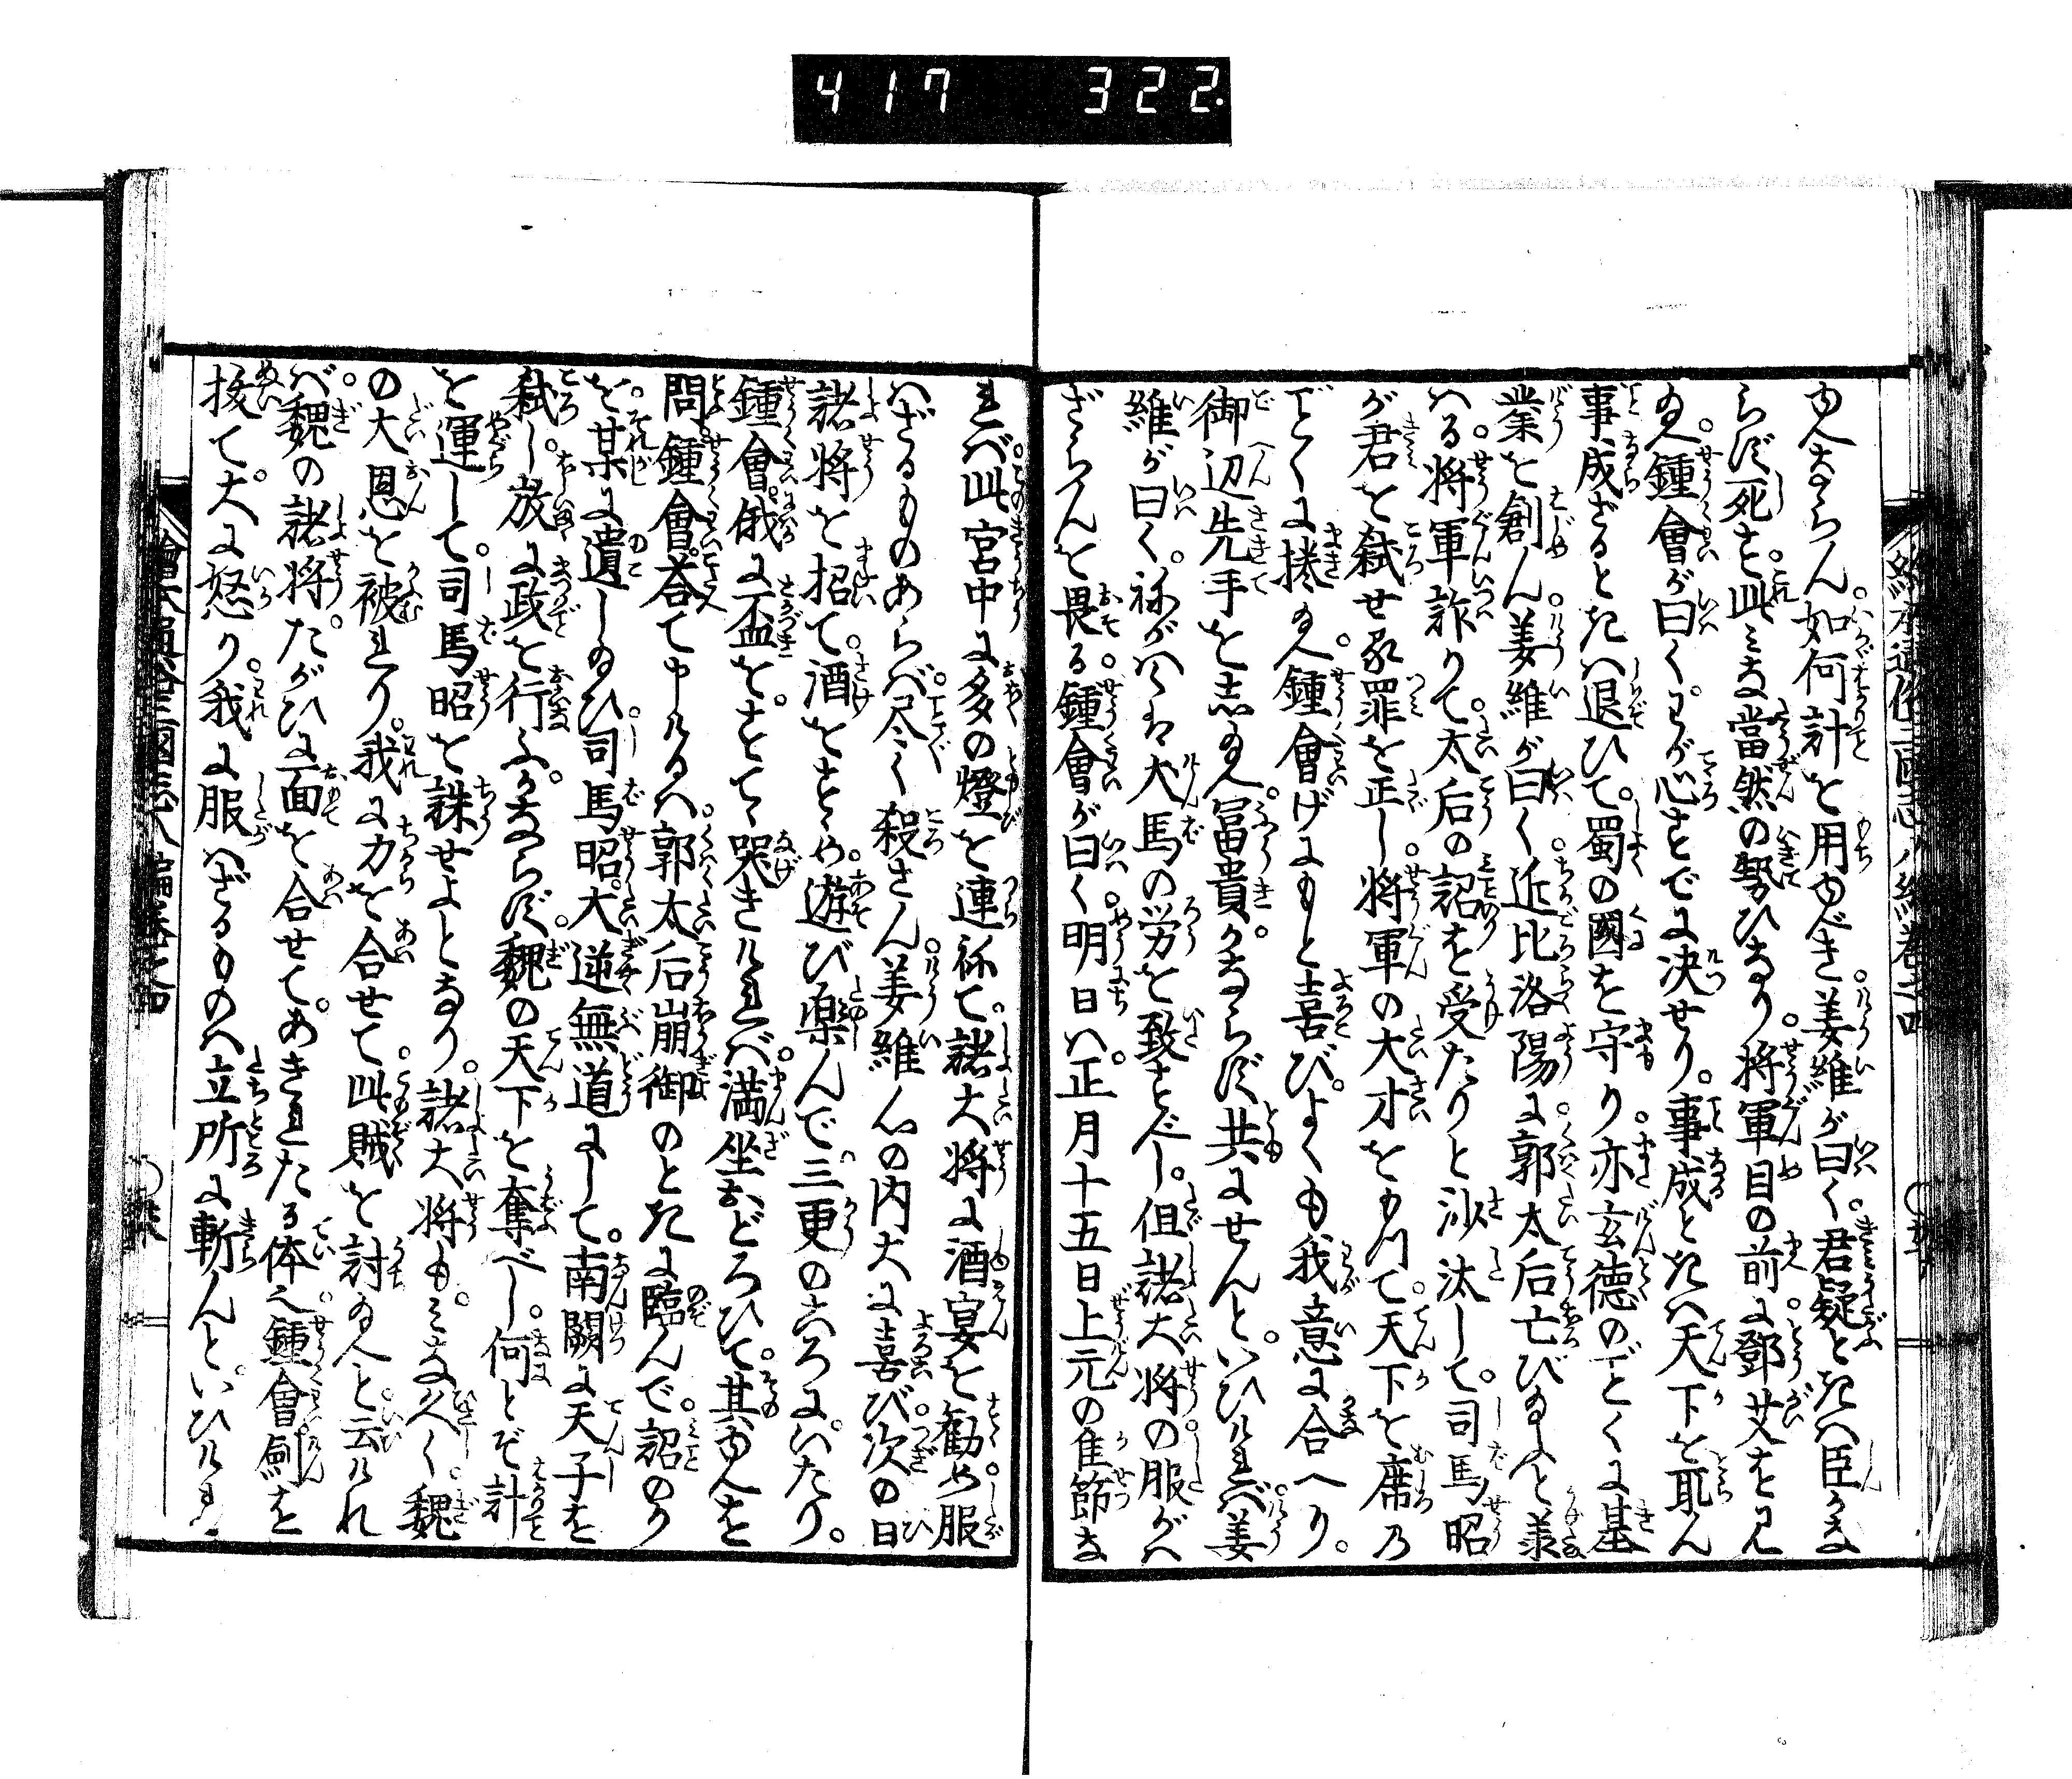 417 322
ゆへならん。如何計を用ゆべき。姜維が曰く。君疑ときは臣かな
らず死す。此みな當然の勢ひなり。将軍目の前に鄧艾を見
給へ。鍾會が曰く。わが心すでに决せり。事成ときは天下を取ん
事成ざるときは退ひて。蜀の國を守り。亦玄徳のごとくに基
業を創ん。姜維が曰く。近比洛陽に郭太后亡び給へと承
はる。将軍詐りて。太后の詔を受たりと沙汰して。司馬昭
が君を弑せる罪を正し。将軍の大才をもつて。天下を席の
ごとくに捲給へ。鍾會げにもと喜び。よくも我意に合へり。
御辺先手をし給へ。冨貴かならず共にせんと。いひければ。姜
維が曰く。祢がはくは犬馬の労を致すべし。但諸大将の服がは
ざらんを畏る。鍾會が曰く。明日は。正月十五日上元の佳節な
れば。此宮中に多の燈を連祢て。諸大将に酒宴を勧め。服
はざるものあらば。尽く殺さん。姜維心の内大に喜び。次の日
諸将を招て。酒をすゝめ。遊び楽んで。三更のころにいたり。
鍾會。俄に盃を。すてゝ哭きければ。満坐おどろひて。其ゆへを
問。鍾會荅て申けるは。郭太后崩御のときに臨んで。詔のり
を。某に遺し給ひ。司馬昭。大逆無道にして。南闕に天子を
弑し。放に政を行ふ。かならず。魏の天下を奪べし。何とぞ計
を運して。司馬昭を誅せよとなり。諸大将も。みな久しく。魏
の大恩を被れり。我に力を合せて。此賊を討給へと。云けれ
ば。魏の諸将。たがひに面を合せて。あきれたる体也。鍾會。劍を
抜て。大に怒り。我に服はざるものは立所に斬んと。いひけれ